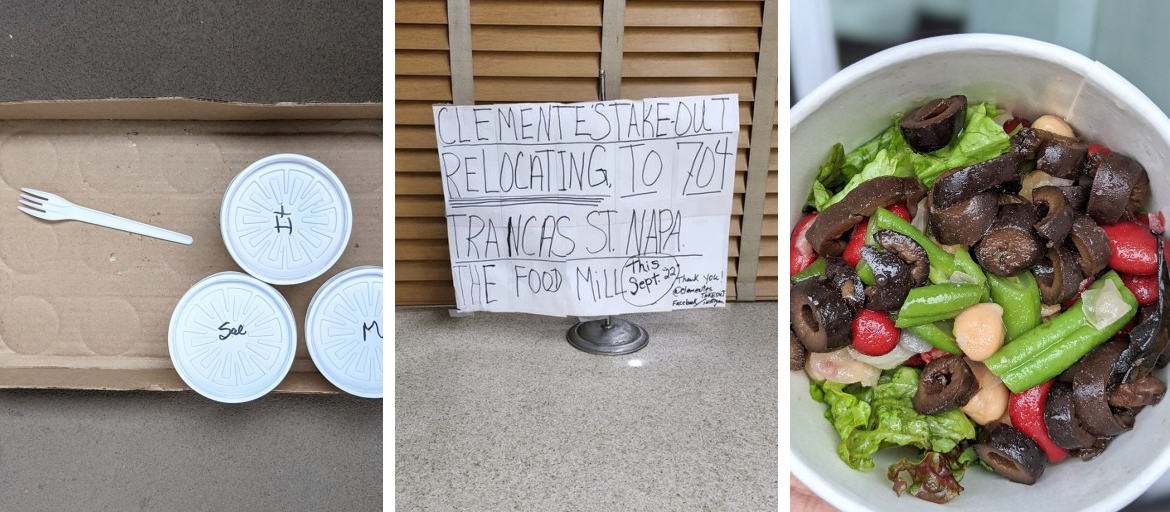 Sal
M
CLEMENTE'S TAKE-OUT
RELOCATING, TO 704
TRANCAS ST. NAPA.
THE FOOD MILL
This
Sept. 22
Thank you!
@clementes
TAKEOUT
Facebook